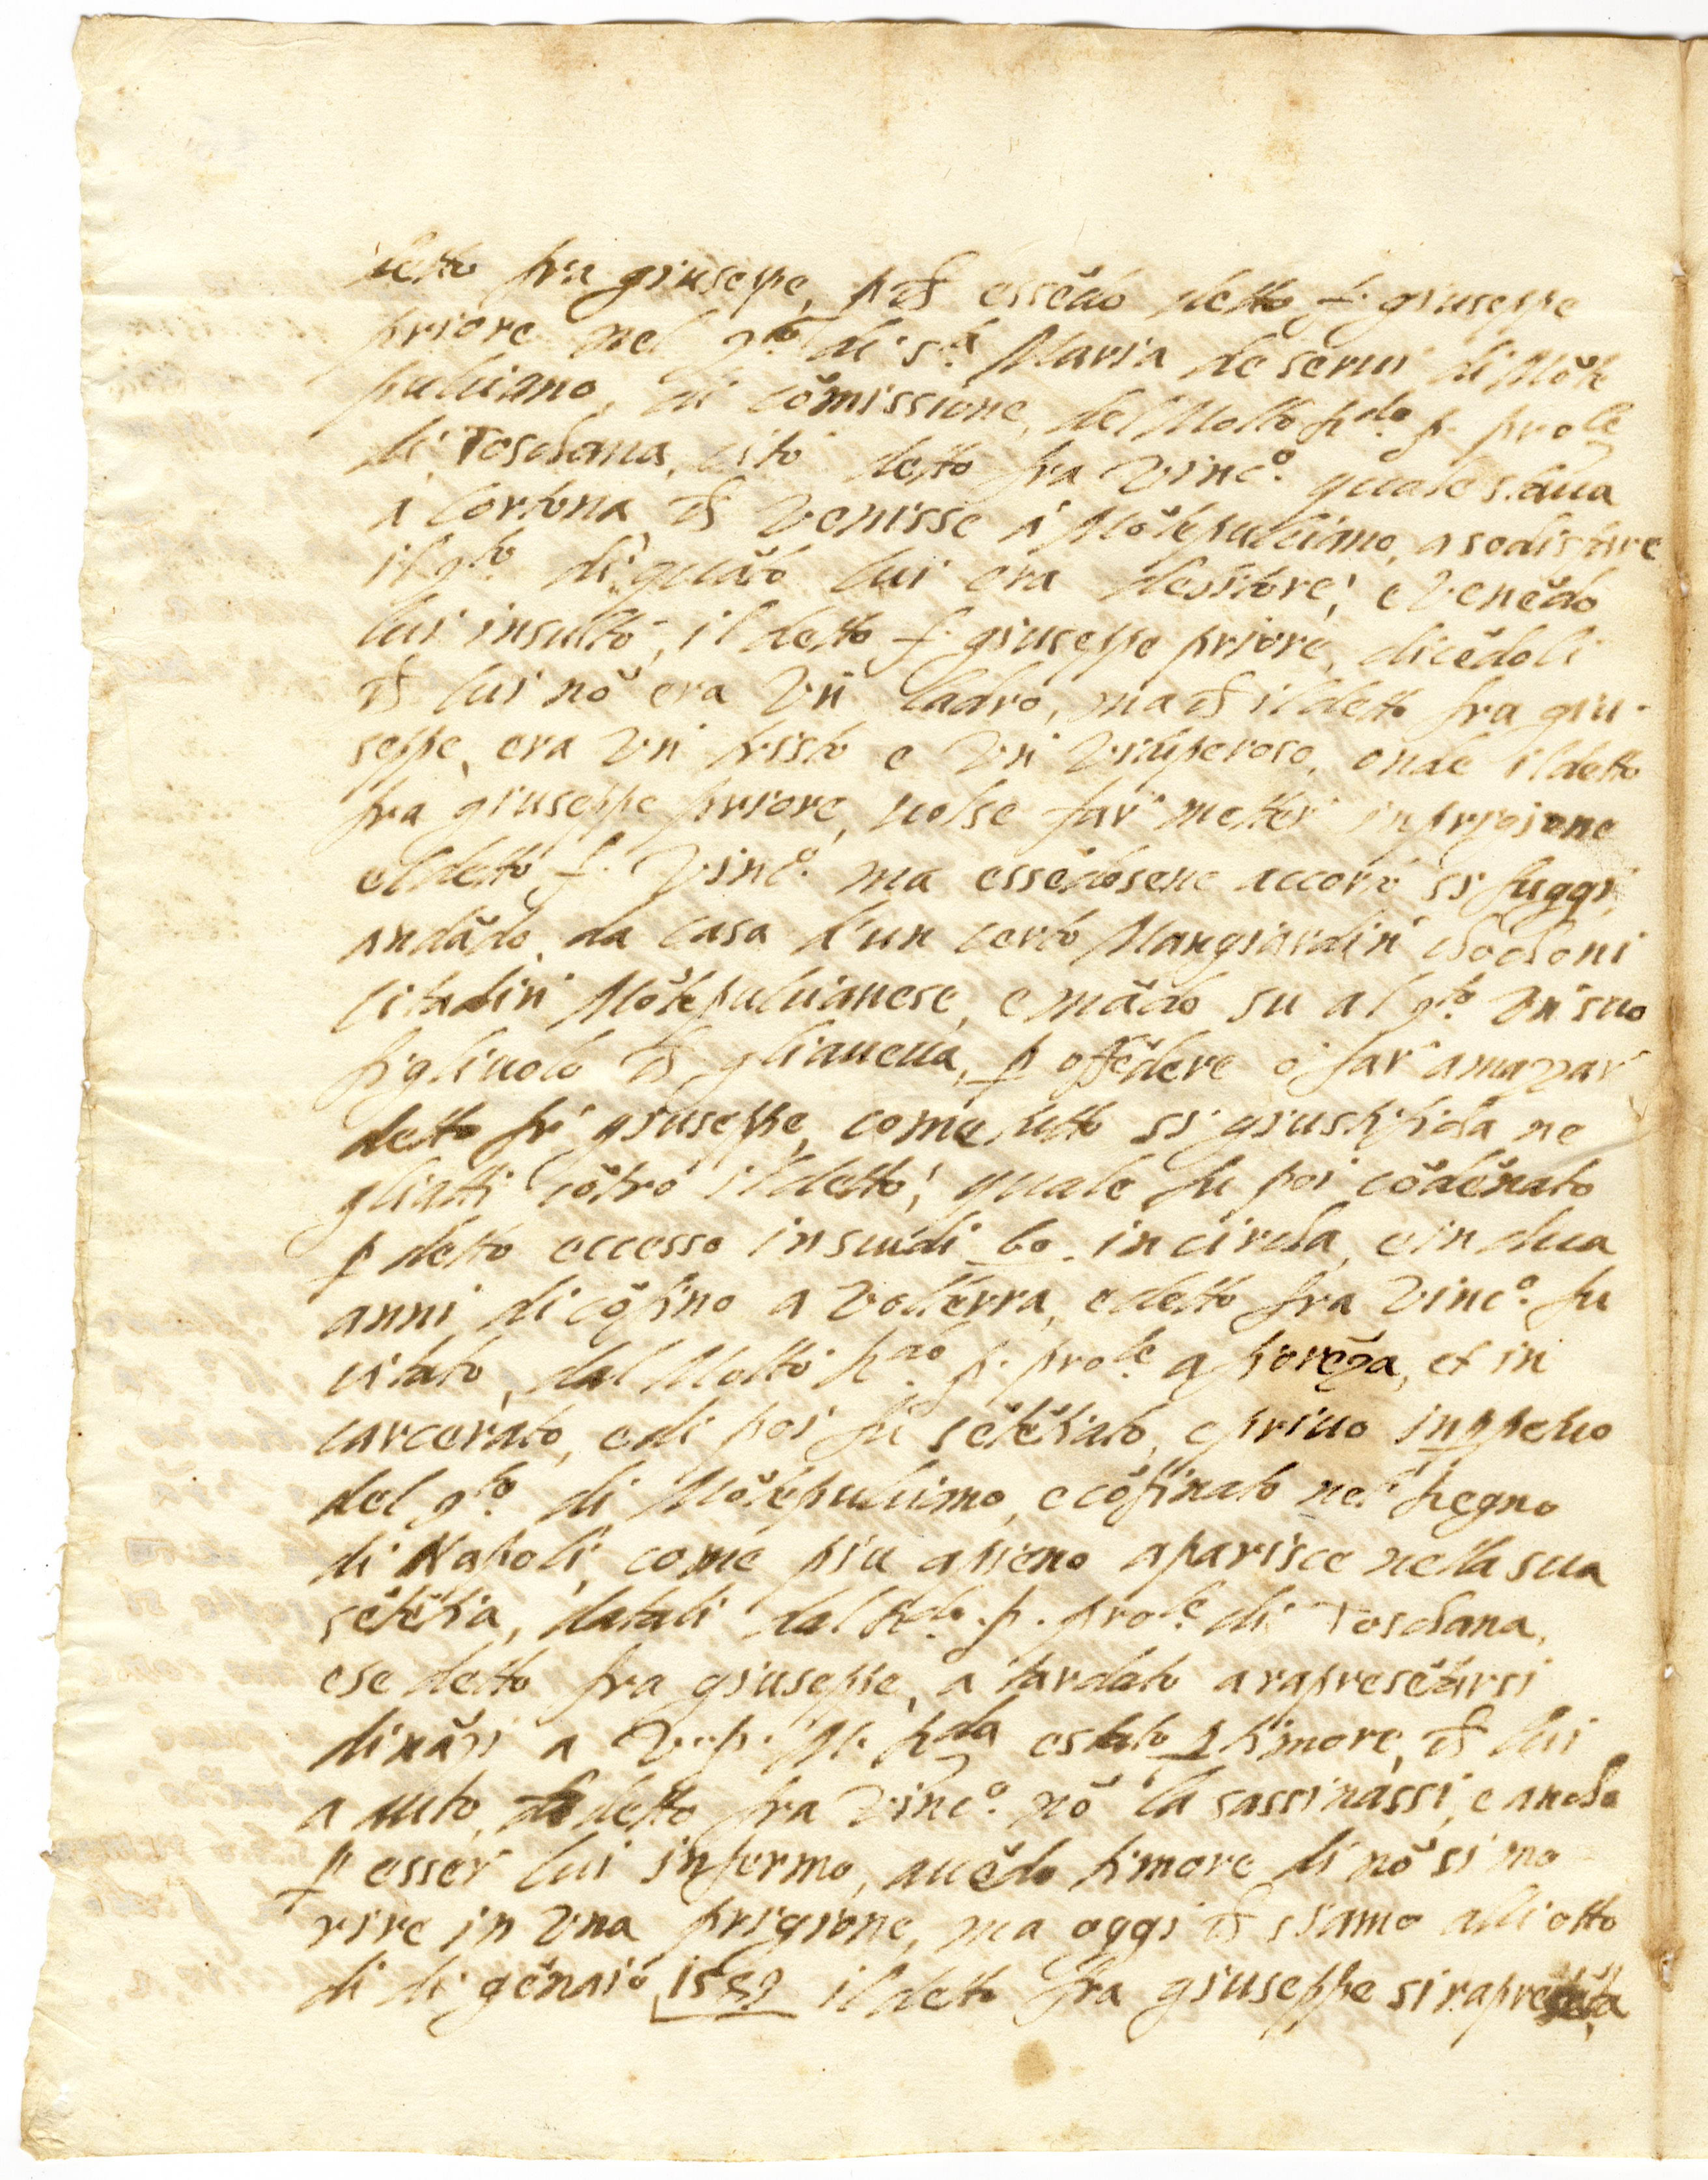 detto fra giuseppe, p ch essẽdo detto f. giuseppe
priore nel 9to di s.ta Maria de serui di Mõte
pulciano, di cõmissione, del Molto Rdo p. prole
di Toschana, citò detto fra Vinco. quale staua
a Cortona, ch Venisse a Mõtepulciano, a sodisfare
il 9to di quãto lui era debitore, e Venẽdo
lui insultò, il detto f. giuseppe priore, dicẽdoli
ch lui nõ era Vn ladro, ma ch il detto fra giu-
seppe, era Vn tristo e Vn Vituperoso, onde il detto
fra giuseppe priore, uolse far metter in prigione
el detto f. Vinco. ma essẽdosene accorto si fuggi,
andãdo, da casa d'un certo Mangiardin chochoni
Citadin Mõtepulcianese, e mãdo su al 9to Vn suo
figliuolo ch gliaueua, p offẽdere o far amazzar
detto frà giuseppe, come tutto si giustificha ne
gliatti cõtro il detto, quale fu poi cõdẽnato
p detto eccesso in scudi 60. in circha, e in dua
anni di cõfino a Volterra, e detto fra Vinco. fu
citato, dal Molto Rdo. p. prole. a fiorẽza, et in
carcerato, e di poi fu sẽtẽtiato, e priuo in ppetuo
del 9to. di Mõtepulciano, e cõfinato nel Regno
di Napoli, come piu apieno aparisce nella sua
sẽtẽtia, datali dal Rdo. p. prole. di Toschana,
e se detto fra giuseppe, a tardato a rapresẽtarsi
dinãzi a V. p. M. Rda e stato p timore, ch lui
a auto, ch detto fra Vinco. nõ la sassinassi, e ancho
p esser lui infermo, auẽdo timore di nõ si mo
rire in Vna prigione, ma oggi ch siamo alli otto
di di gẽnaio, 1589 il detto fra giuseppe si rapresẽta,